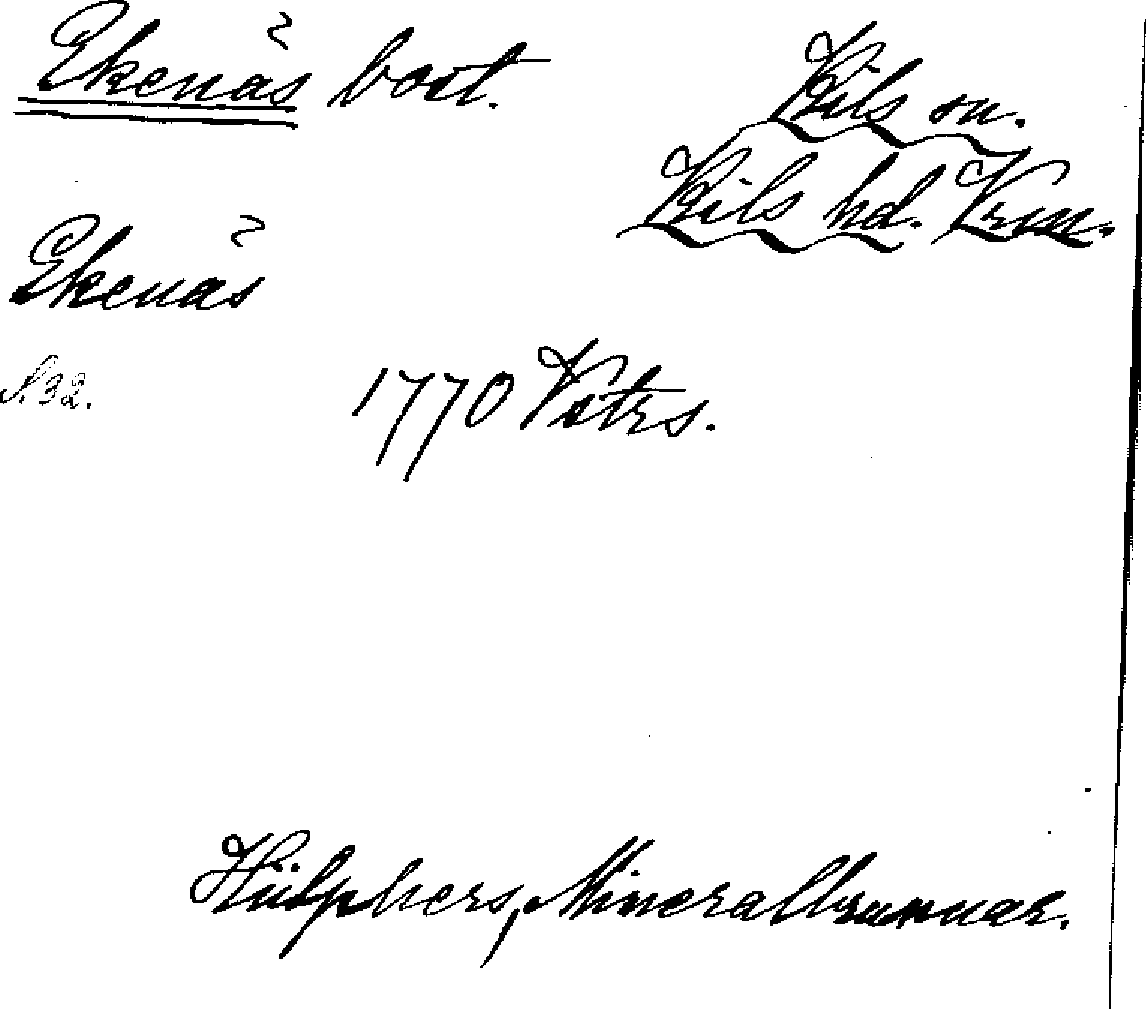 Ekenäs bost.
Kils sn.
Kils hd. Vrm.
Ekenäs
S. 32.
1770 Vstrs.
Hülphers, Mineralbrunnar.